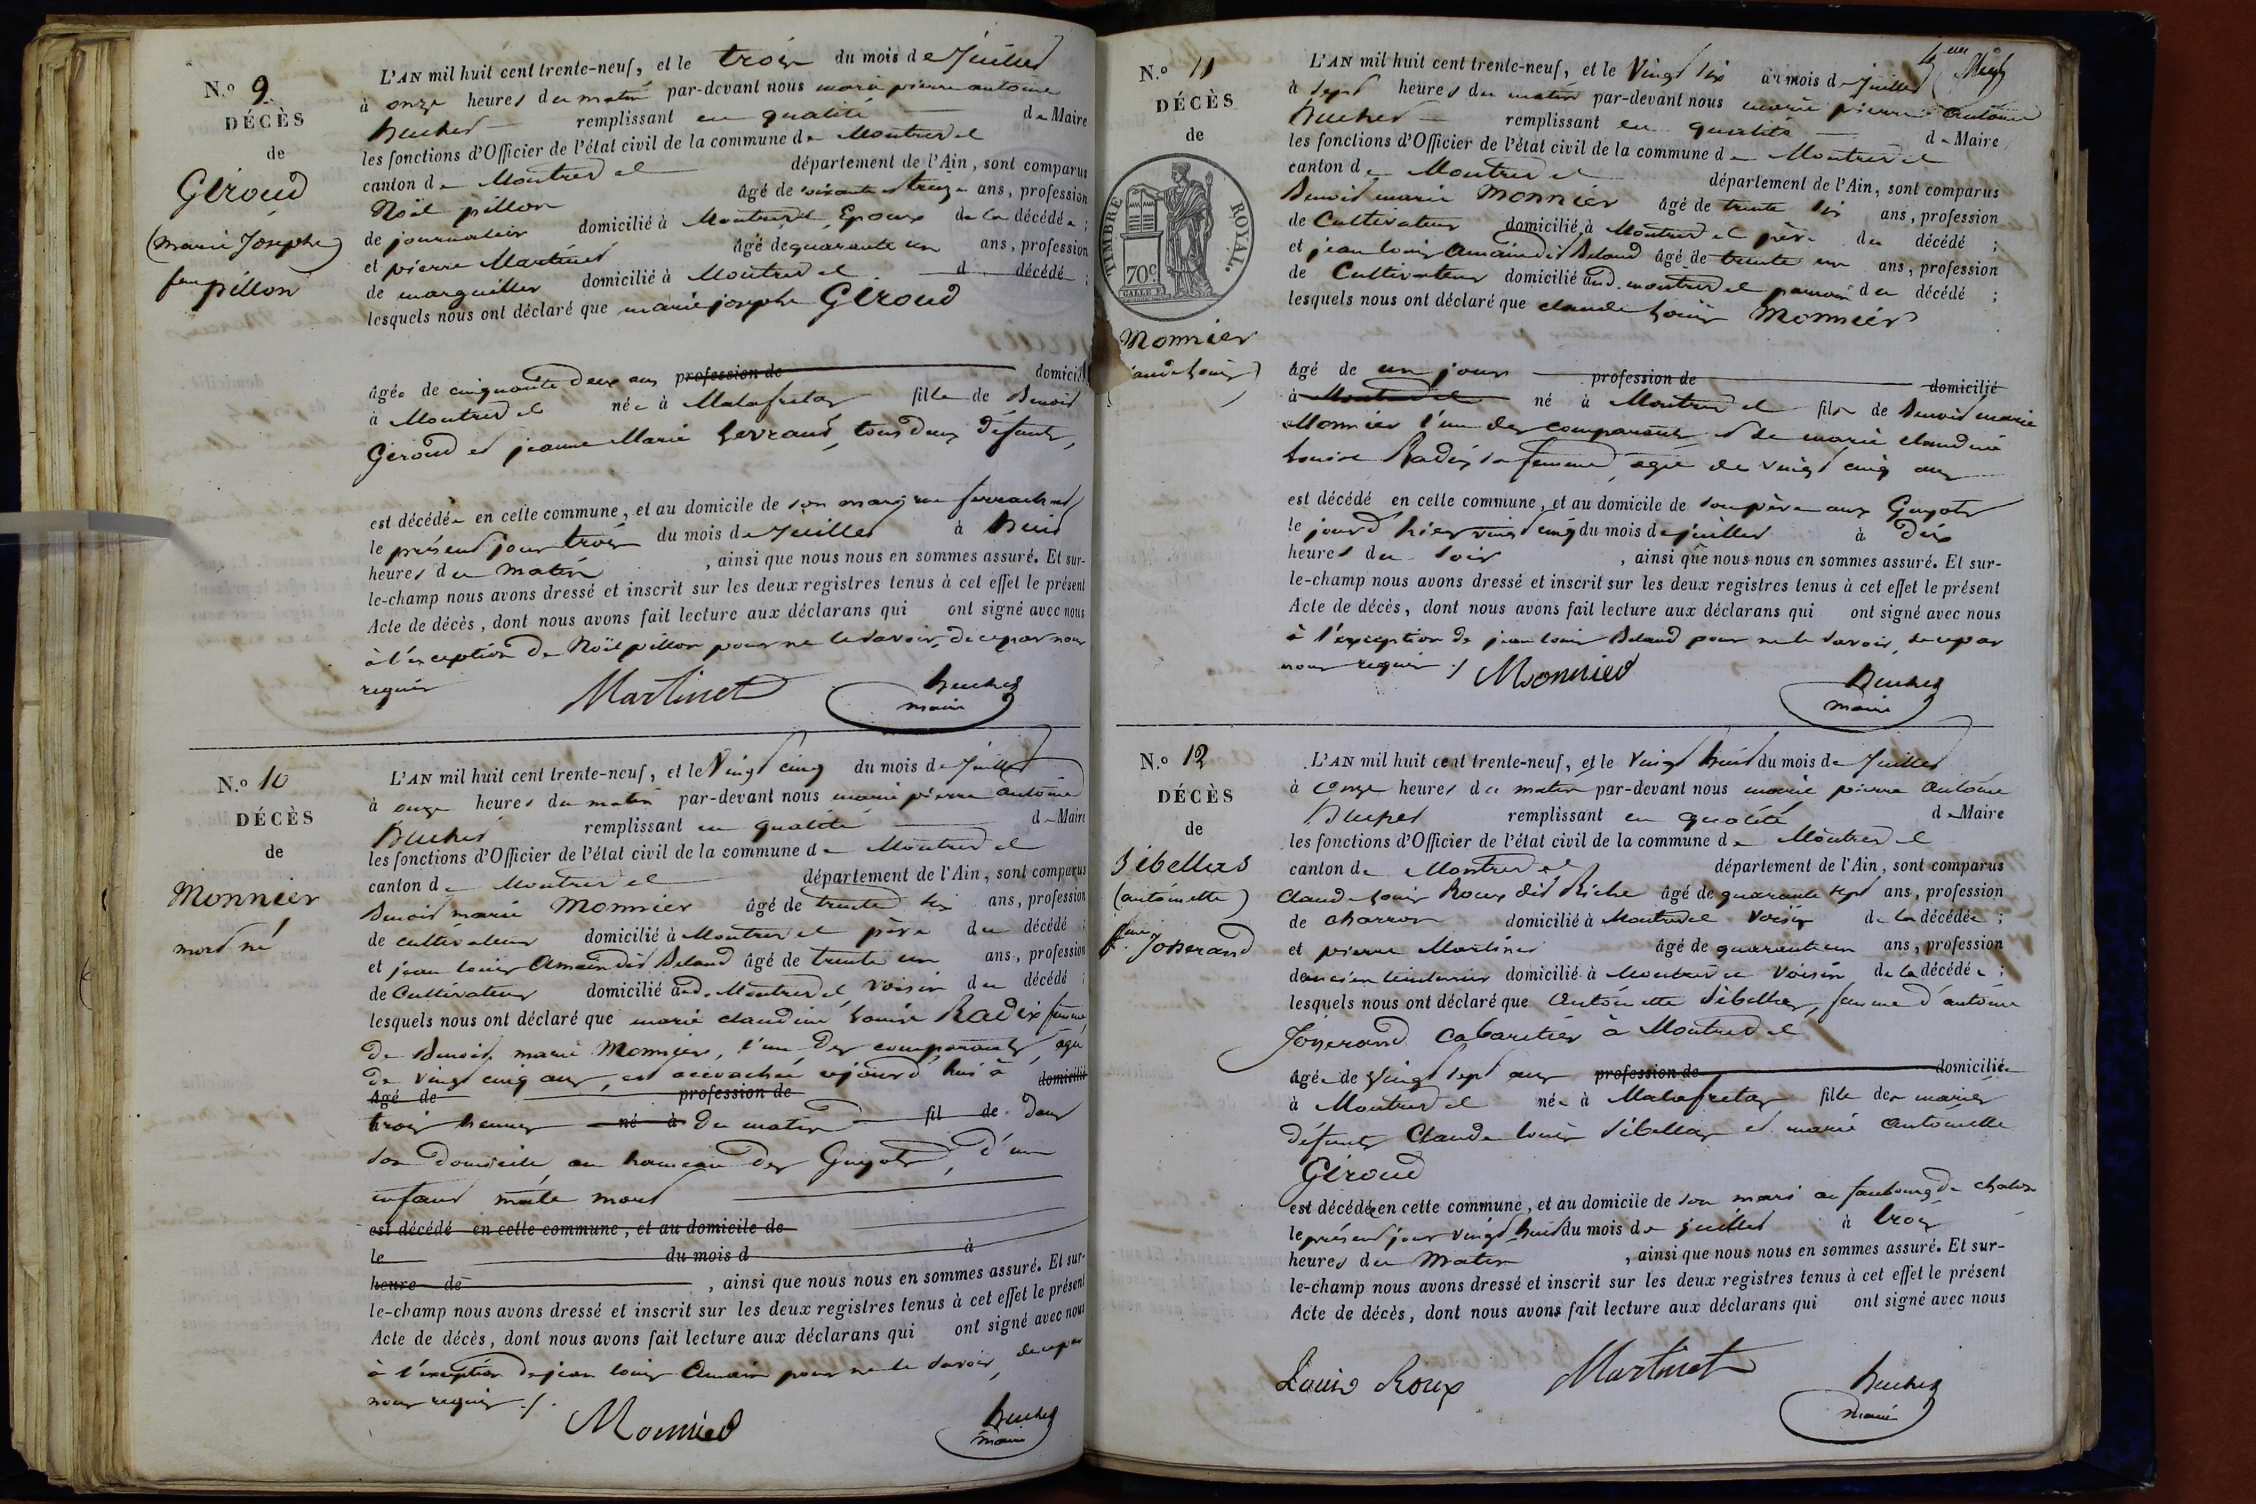 N.o 9
DÉCÈS
de
Géroud
(marie Josephe)
fme pillon
L'AN mil huit cent trente-neuf, et le trois du mois de Juillet
à onze heures du matin par-devant nous marie pierre antoine
remplissant en qualité de Maire
les fonctions d'Officier de l'état civil de la commune de Montrevel
canton de Montrevel département de l'Ain, sont comparus
Noël pillon âgé de soixante et treize ans, profession
de journalier domicilié à Montrevel Epoux de la décédée ;
et pierre Martinet âgé de quarante un ans, profession
de marguiller domicilié à Montrevel d décédé ;
lesquels nous ont déclaré que marie josephe Géroud
âgée de cinquante deux ans profession de domicil
à Montrevel née à Malafretaz fille de Benoit
Géroud et jeanne Marie tous deux défunts,
est décédée en cette commune, et au domicile de son mary
le présent jour trois du mois de Juillet à huit
heures du matin , ainsi que nous nous en sommes assuré. Et sur-
le-champ nous avons dressé et inscrit sur les deux registres tenus à cet effet le présent
Acte de décès, dont nous avons fait lecture aux déclarans qui ont signé avec nous
à l'exception de Noël pillon pour ne le savoir, de ce par nous
requis
Martinet
maire
N.o 10
DÉCÈS
de
Monnier
mort né
L'AN mil huit cent trente-neuf, et le Vingt cinq du mois de Juillet
à onze heures du matin par-devant nous marie pierre antoine
remplissant en qualité de Maire
les fonctions d'Officier de l'état civil de la commune de Montrevel
canton de Montrevel département de l'Ain, sont comparus
Benoit marie Monnier âgé de trente six ans, profession
de cultivateur domicilié à Montrevel père du décédé ;
et jean louis Amain dit Beland âgé de trente un ans, profession
de Cultivateur domicilié aud. Montrevel voisin du décédé ;
lesquels nous ont déclaré que marie claudine Louise Radix femme
de Benoit marie Monnier, l'un des comparants, agée
de vingt cinq ans, est accouchée aujourd'hui à domicilié
âgé de profession de
trois heures né à du matin fil de dans
son domicile au hameau des Guyots, d'un
enfant mâle mort
est décédé en cette commune, et au domicile de
le du mois d à
heure de , ainsi que nous nous en sommes assuré. Et sur-
le-champ nous avons dressé et inscrit sur les deux registres tenus à cet effet le présent
Acte de décès, dont nous avons fait lecture aux déclarans qui ont signé avec nous
à l'exception de jean louis Amain pour ne le savoir, de ce par
nous requis ./.
Monnier
maire
N.o 11
DÉCÈS
de
TIMBRE ROYAL.
70c
Monnier
L'AN mil huit cent trente-neuf, et le Vingt six du mois de Juillet
à sept heures du matin par-devant nous marie pierre antoine
remplissant en qualité de Maire
les fonctions d'Officier de l'état civil de la commune de Montrevel
canton de Montrevel département de l'Ain, sont comparus
Benoit marie Monnier âgé de trente six ans, profession
de Cultivateur domicilié à Montrevel père du décédé ;
et jean louis Amain dit Beland âgé de trente un ans, profession
de Cultivateur domicilié aud. montrevel parrain du décédé ;
lesquels nous ont déclaré que claude Louis Monnier
âgé de un jour profession de domicilié
à Montrevel né à Montrevel fils de Benoit marie
Monnier l'un des comparants et de marie claudine
Louise Radix sa femme, agée de vingt cinq ans
est décédé en cette commune, et au domicile de son père aux Guyots
le jour d'hier vingt cinq du mois de juillet à dix
heures du soir , ainsi que nous nous en sommes assuré. Et sur-
le-champ nous avons dressé et inscrit sur les deux registres tenus à cet effet le présent
Acte de décès, dont nous avons fait lecture aux déclarans qui ont signé avec nous
à l'exception de jean louis Beland pour ne le savoir, de ce par
nous requis ./
Monnier
maire
N.o 12
DÉCÈS
de
Sibellas
(antoinette)
fme Josserand
L'AN mil huit cent trente-neuf, et le Vingt huit du mois de Juillet
à Onze heures du matin par-devant nous marie pierre antoine
remplissant en qualité de Maire
les fonctions d'Officier de l'état civil de la commune de Montrevel
canton de Montrevel département de l'Ain, sont comparus
Claude Louis Roux dit Riche âgé de quarante sept ans, profession
de charron domicilié à Montrevel voisin de la décédée ;
et pierre Martinet âgé de quarante un ans, profession
domicilié à Montrevel voisin de la décédée ;
lesquels nous ont déclaré que Antoinette Sibellas, femme d'antoine
Josserand Cabaretier à Montrevel
âgée de vingt sept ans profession de domiciliée
à Montrevel née à Malafretaz fille des mariés
défunts Claude louis Sibellas et marie Antoinette
Géroud
est décédée en cette commune, et au domicile de son mari au faubourg de chalon
le présent jour vingt huit du mois de juillet à trois
heures du matin , ainsi que nous nous en sommes assuré. Et sur-
le-champ nous avons dressé et inscrit sur les deux registres tenus à cet effet le présent
Acte de décès, dont nous avons fait lecture aux déclarans qui ont signé avec nous
Louis Roux Martinet
maire